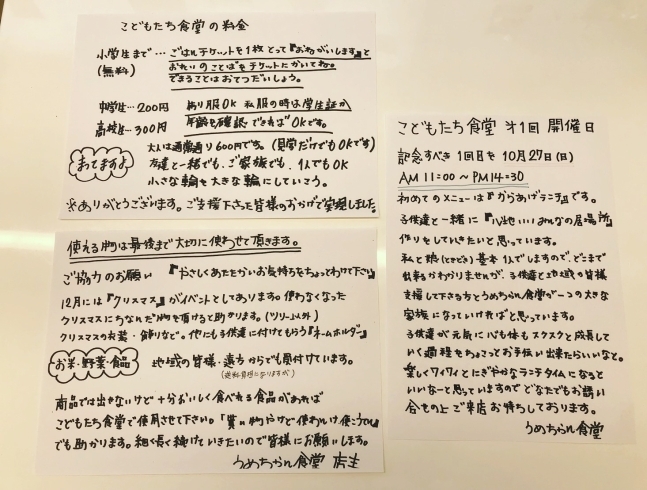 こどもたち食堂の料金
小学生まで…ごはんチケットを1枚とって『おねがいします』と
(無料)
おれいのことばをチケットにかいてね。
できることはおてつだいしよう。
中学生…200円 あり服OK 私服の時は学生証か
高校生…300円 年齢を確認できればOKです。
大人は通常通り600円です。(見学だけでもOKです)
まてますよ
友達と一緒でも、ご家族でも、1人でもOK
小さな輪を大きな輪にしていこう。
※ありがとうございます。ご支援下さった皆様のおかげで実現しました。
使える物は最後まで大切に使わせて頂きます。
ご協力のお願い 『やさしくあたたかいお気持ちをちょっとわけて下さい』
12月には『クリスマス』がイベントとしてあります。使わなくなった
クリスマスにちなんだ物を頂けると助かります。(ツリー以外)
クリスマスの衣装・飾りなど。他にも子供達に付けてもらう『ネームホルダー』
お米・野菜・食品 地域の皆様・遠方からでも受付ています。
商品では出せないけど十分おいしく食べれる食品があれば
こどもたち食堂で使用させて下さい。「貰い物だけど使わんけ使うてん」
でも助かります。細く長く続けていきたいので皆様にお願いします。
うめちゃん食堂 店主
こどもたち食堂 オ1回 開催日
記念すべき 1回目を 10月27日(日)
AM 11:00 ～ PM 14:30
初めてのメニューは『からあげランチ』です。
子供達と一緒に『心地いいみんなの居場所』
作りをしていきたいと思っています。
私と娘(ときどき)基本1人でしますので、どこまで
出来るかわかりませんが、子供達と地域の皆様
支援して下さる方とうめちゃん食堂が一つの大きな
家族になっていければと思っています。
子供達が元気に心も体もスクスクと成長して
いく過程をちょこっとお手伝い出来たらいいなと。
楽しくワイワイとにぎやかなランチタイムになると
いいなーと思っていますのでどなたでもお誘い
合わせの上ご来店お待ちしております。
うめちゃん食堂